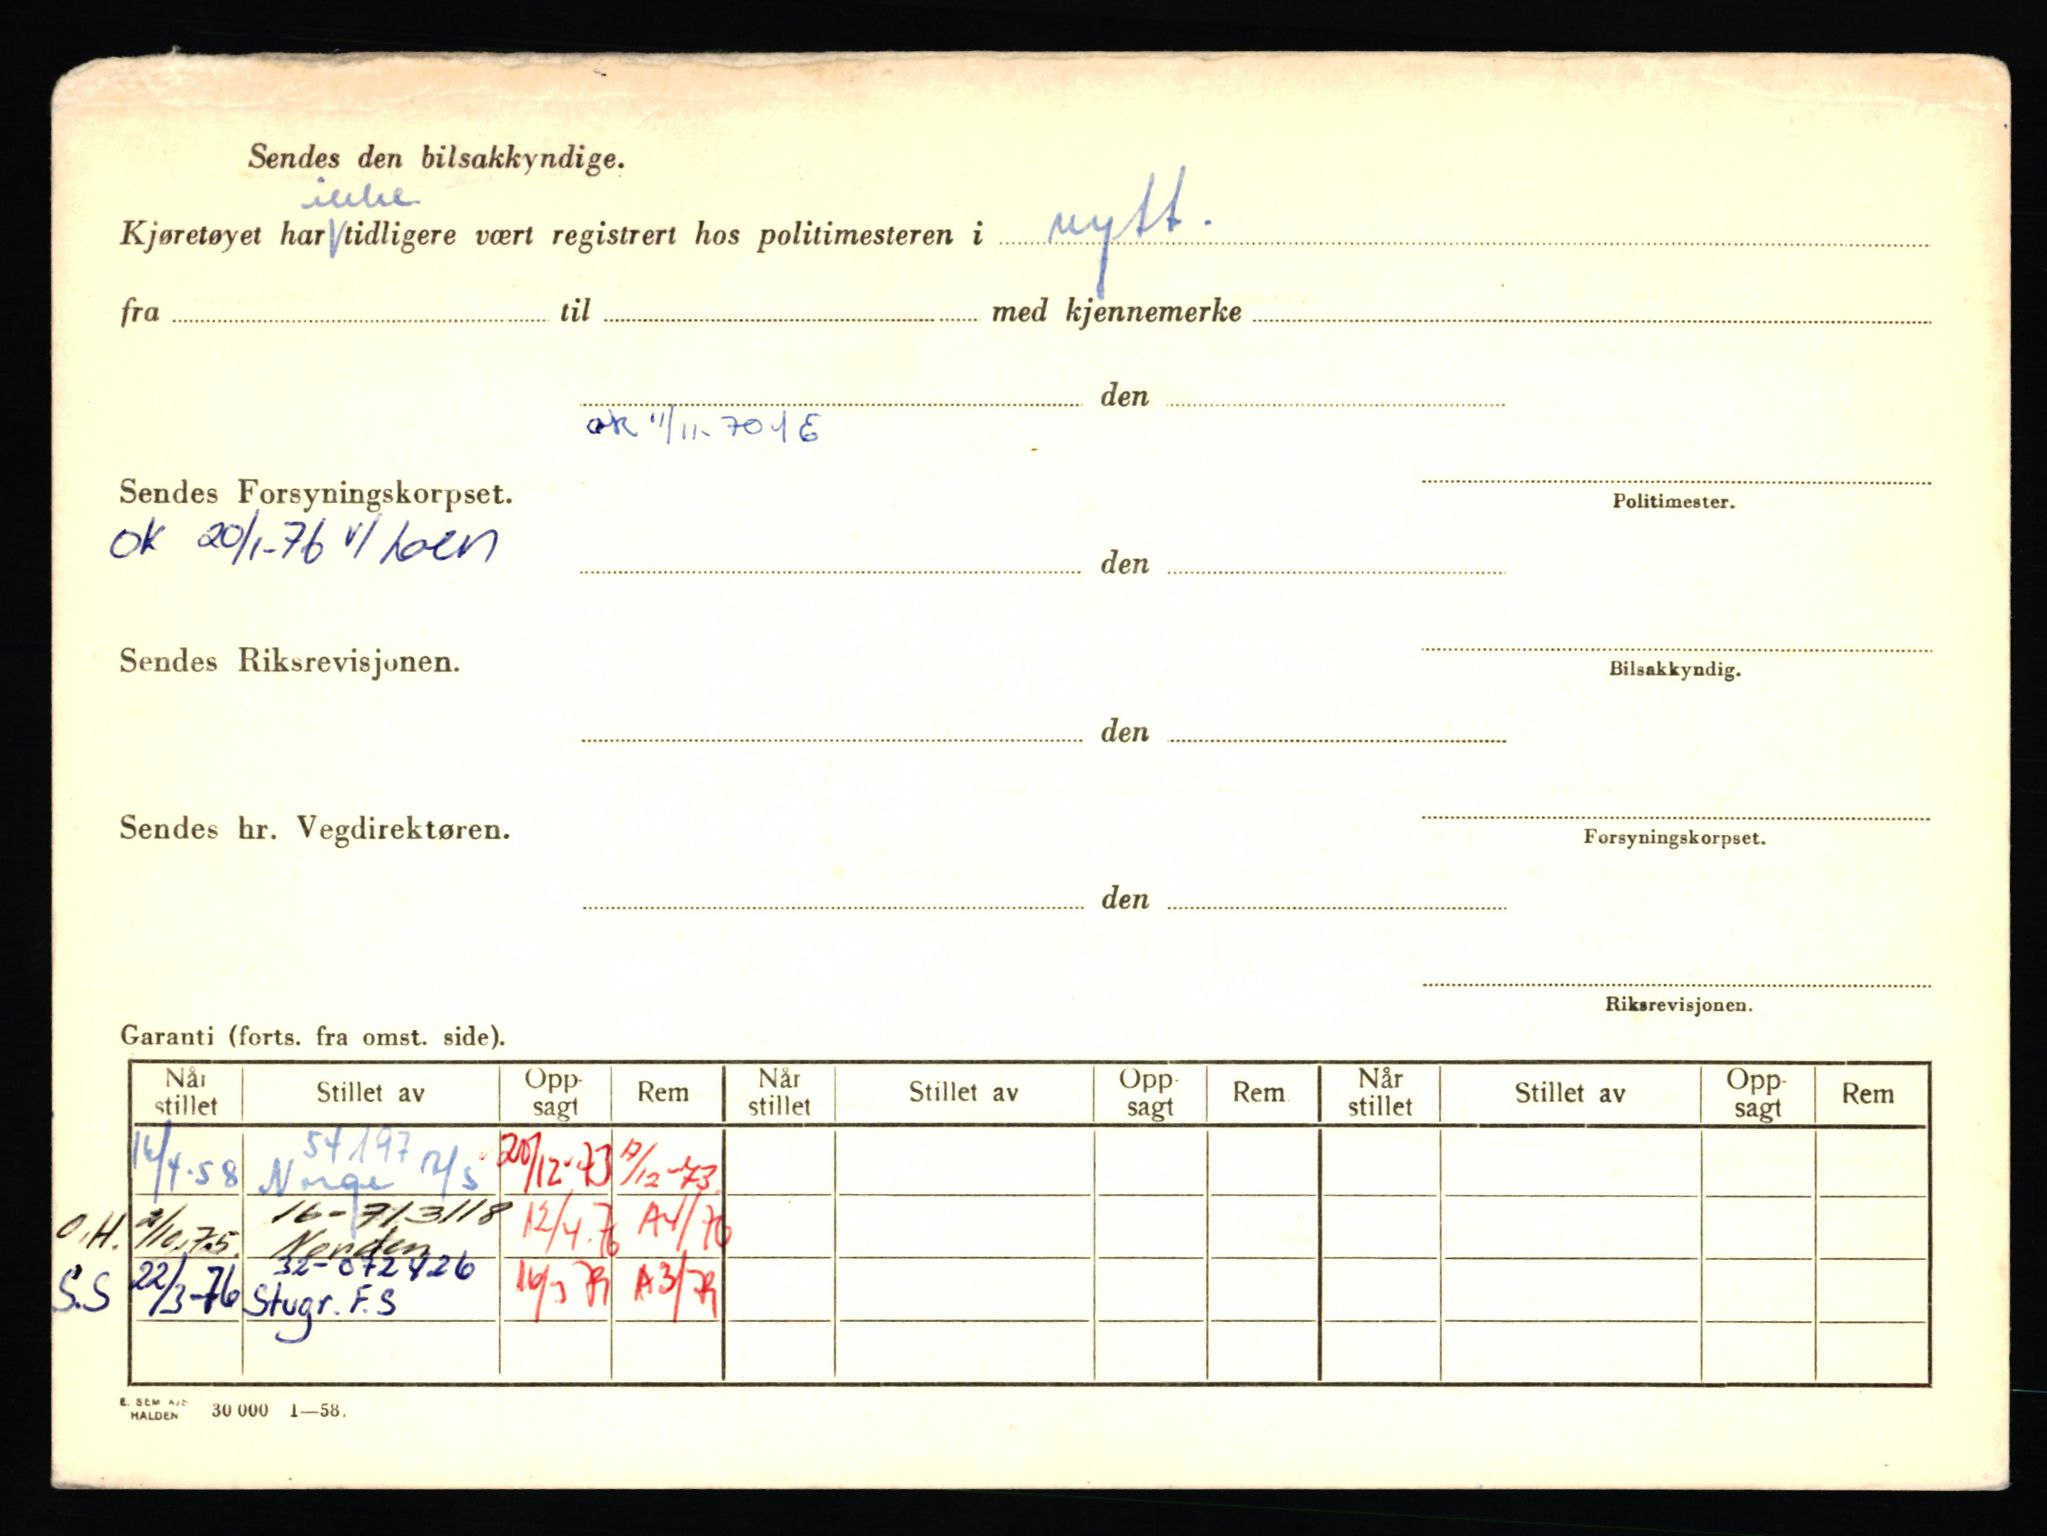 Sendes den bilsakkyndige.
ikke
Kjøretøyet har tidligere vært registrert hos politimesteren i nytt.
fra til med kjennemerke
den
ok 11/11-70
Sendes Forsyningskorpset.
Politimester.
ok 20/1-76 v/ Loen
den
Sendes Riksrevisjonen.
Bilsakkyndig.
den
Sendes hr. Vegdirektøren.
Forsyningskorpset.
den
Riksrevisjonen.
Garanti (forts. fra omst. side).
Når stillet Stillet av Opp-sagt Rem Når stillet Stillet av Opp-sagt Rem Når stillet Stillet av Opp-sagt Rem
54197
/4-58 Norge 20/12-73 /12-73
16-713118
O.H. 2/10.75. Norden 12/4.76 A4/76
32-072426
S.S 22/3-76 Stugr. F.S 16/3 A3/
E. SEM A/S
HALDEN 30 000 1—58.